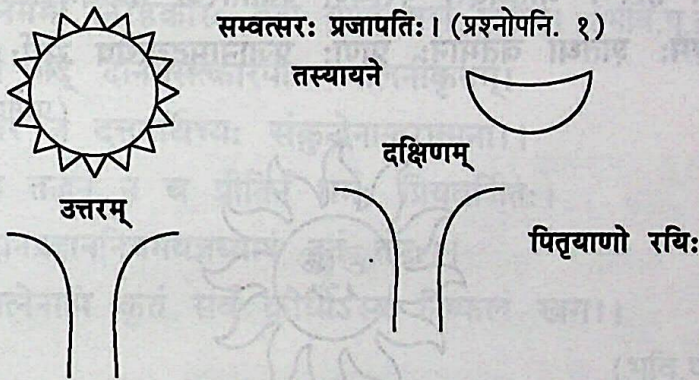 सम्वत्सरः प्रजापतिः। (प्रश्नोपनि. १)
तस्यायने
दक्षिणम्
उत्तरम्
पितृयाणो रयिः